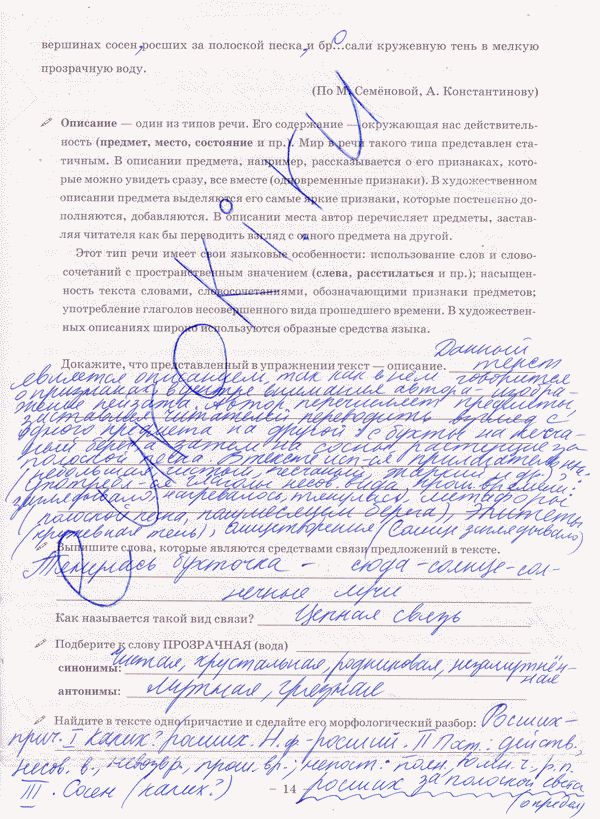 вершинах сосен, росших за полоской песка, и бр...осали кружевную тень в мелкую
прозрачную воду.
(По М. Семёновой, А. Константинову)
Описание — один из типов речи. Его содержание — окружающая нас действитель-
ность (предмет, место, состояние и пр.). Мир в речи такого типа представлен ста-
тичным. В описании предмета, например, рассказывается о его признаках, кото-
рые можно увидеть сразу, все вместе (одновременные признаки). В художественном
описании предмета выделяются его самые яркие признаки, которые постепенно до-
полняются, добавляются. В описании места автор перечисляет предметы, застав-
ляя читателя как бы переводить взгляд с одного предмета на другой.
Этот тип речи имеет свои языковые особенности: использование слов и слово-
сочетаний с пространственным значением (слева, расстилаться и пр.); насыщен-
ность текста словами, словосочетаниями, обозначающими признаки предметов;
употребление глаголов несовершенного вида прошедшего времени. В художествен-
ных описаниях широко используются образные средства языка.
Докажите, что представленный в упражнении текст — описание. Данный текст
является описанием, так как в нём говорится
о признаках, в центре внимания автора – изобра-
жение пейзажа. Автор перечисляет предметы,
заставляя читателей переводить взгляд с
одного предмета на другой: с бухты на песча-
ный берег, затем на сосны, растущие за
полосой песка. В тексте исп-ся прилагательные
(небольшая, чистый, песчаный, жаркий и др.),
(употребл-ся глаголы несов. вида, прош. времени:
заглядывало, нагревалось, тянулись), метафоры
(полоской песка, полумесяцем берега), эпитеты
(кружевная тень), олицетворения (Солнце заглядывало)
Выпишите слова, которые являются средствами связи предложений в тексте.
Тянулась бухточка – сюда – солнце – сол-
нечные лучи
Как называется такой вид связи? Цепная связь
Подберите к слову ПРОЗРАЧНАЯ (вода)
синонимы: Чистая, хрустальная, родниковая, незамутнён-
ная
антонимы: мутная, грязная
Найдите в тексте одно причастие и сделайте его морфологический разбор: Росших –
прич. I Каких? росших. Н.ф – росший. II Пост.: действ.,
несов. в., невозвр., прош. вр.; непост.: полн., во мн. ч., р.п.
III. Сосен (каких?) росших за полоской света
(определ)
– 14 –